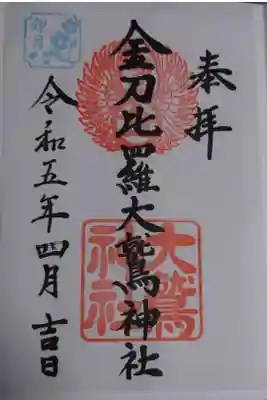 奉拝
金刀比羅大鷲神社
大鷲
神社
令和五年四月吉日
卯月